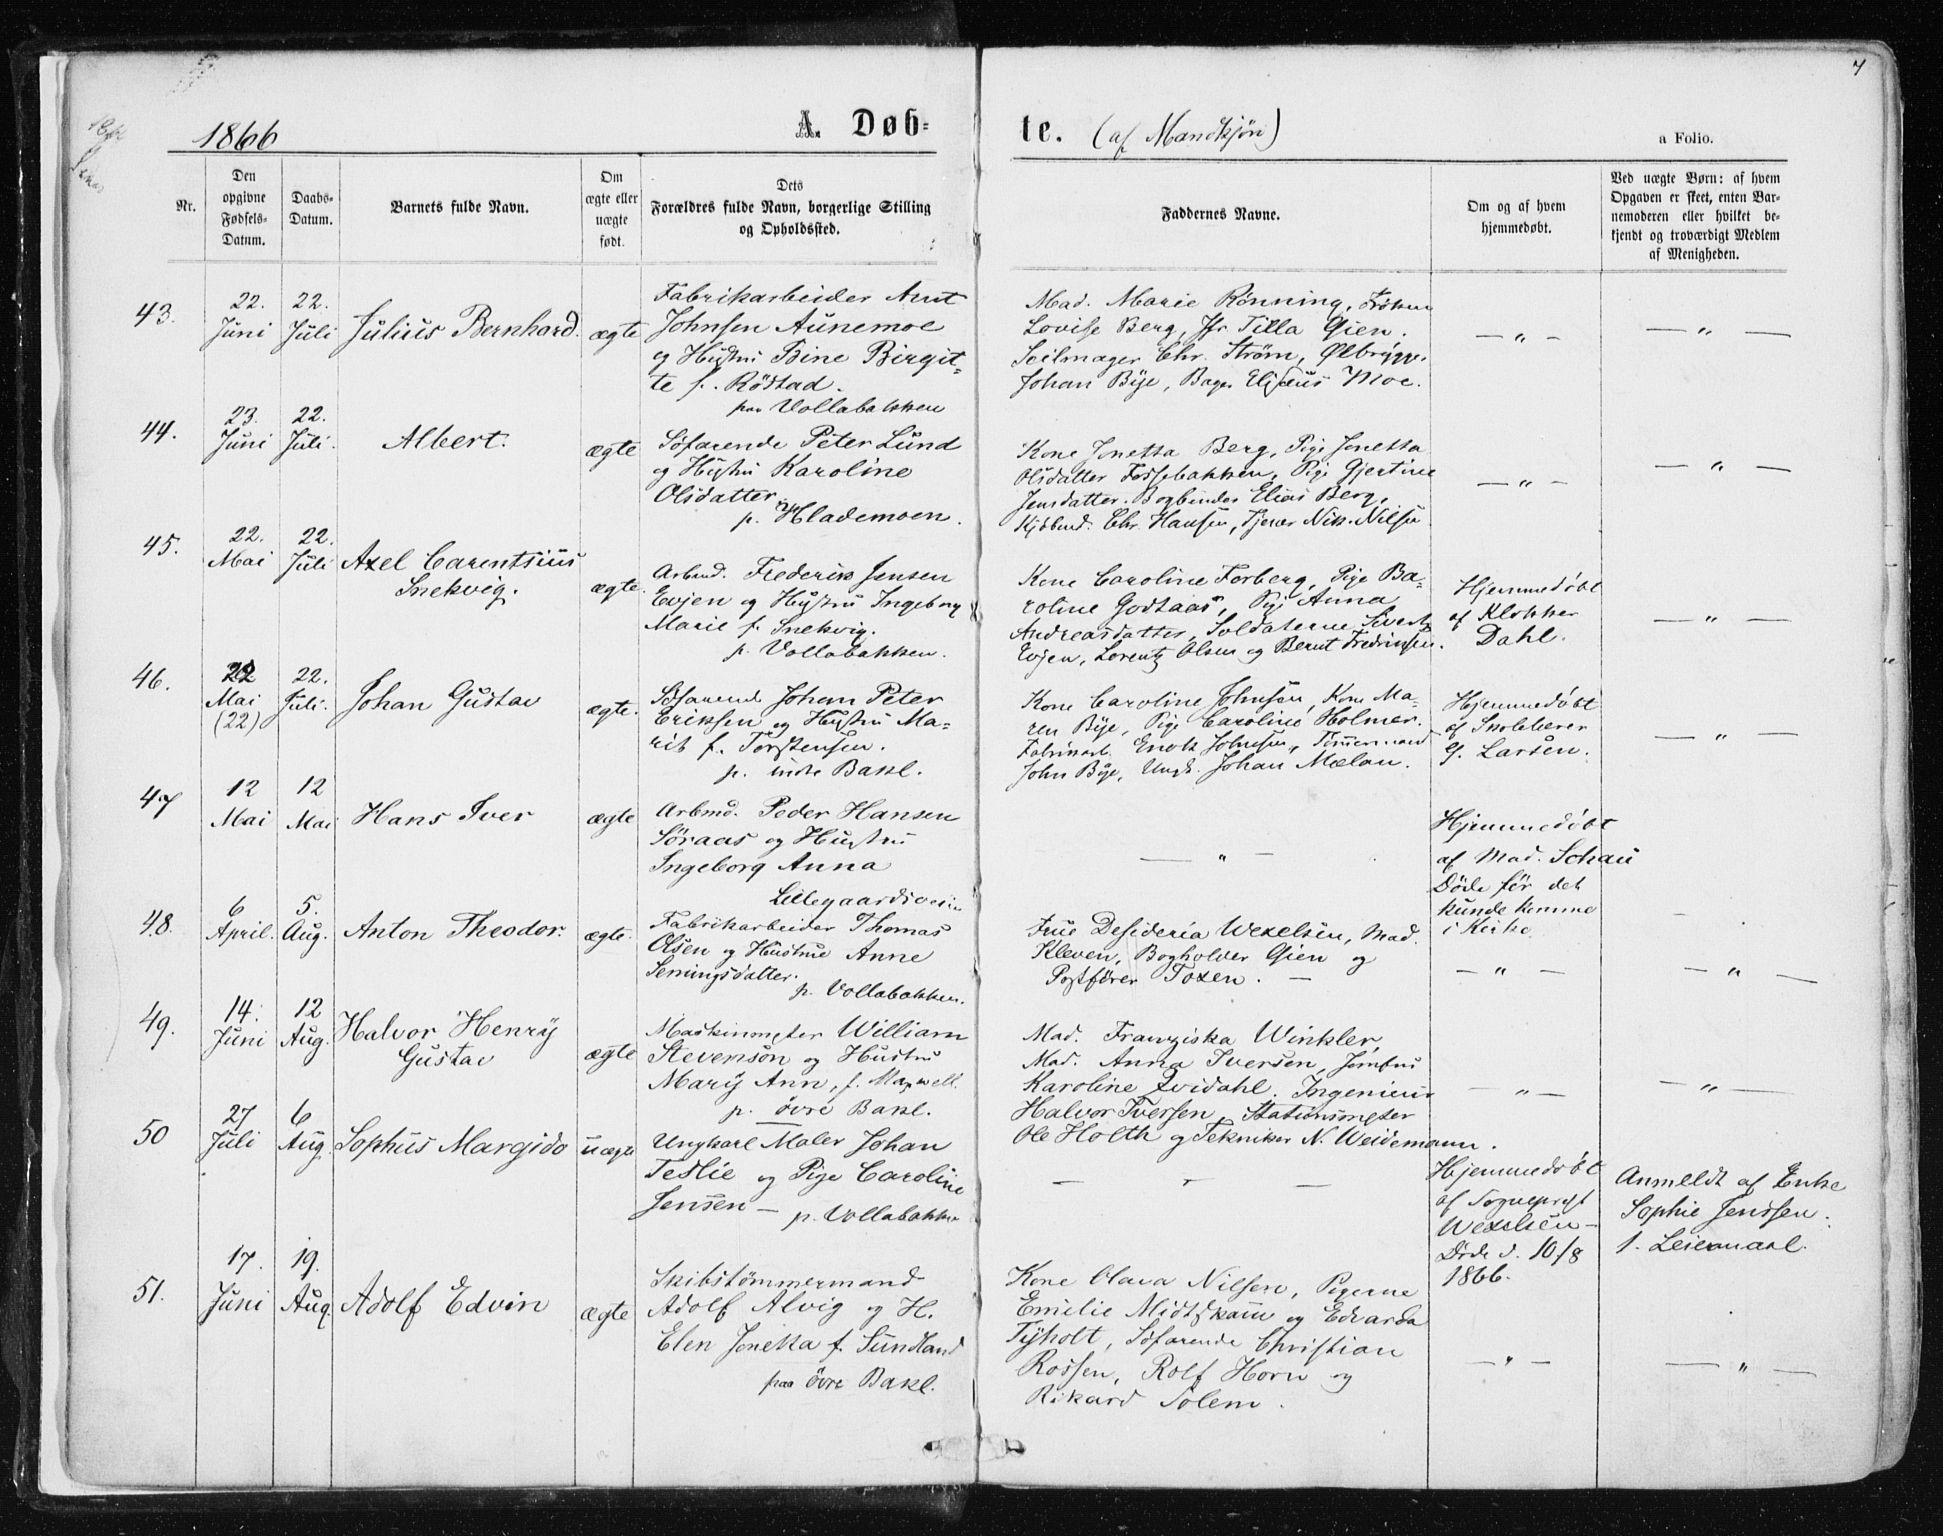 1866
A. Døb-
te. (af Mandkjøn)
7
a Folio.
Nr.
Den opgivne Fødsels-Datum.
Daabs-Datum.
Barnets fulde Navn.
Om ægte eller uægte født.
Dets Forældres fulde Navn, borgerlige Stilling og Opholdssted.
Faddernes Navne.
Om og af hvem hjemmedøbt.
Ved uægte Børn: af hvem Opgaven er skeet, enten Barnemoderen eller hvilket bekjendt og troværdigt Medlem af Menigheden.
43.
22. Juni
22. Juli
Julius Bernhard.
ægte
Fabrikarbeider Arnt
Johnsen Aunemoe
og Hustru Bine Birgit-
te f. Rödstad.
paa Vollabakken
Mad. Marie Rønning, Frøken
Lovise Berg, Jfr Tilla Gien.
Seilmager Chr. Strøm, Ølbrygge.
Johan Bye, Bager Elisæus Moe.
— " —
— " —
44.
23. Juni
22. Juli.
Albert.
ægte
Søfarende Peter Lund
og Hustru Karoline
Olsdatter.
p. Hlademoen.
Kone Jonetta Berg, Pige Jonetta
Olsdatter Fossebakken, Pige Gjertine
Jensdatter. Bogbinder Elias Berg,
Kjøbmd. Chr. Hansen, Tjener Nik. Nilsen
— " —
— " —
45.
22. Mai
22. Juli
Axel Carentsius
Snekvig.
ægte.
Arbmd. Frederik Jensen
Evjen og Hustru Ingeborg
Marie f. Snekvig.
p. Vollabakken.
Kone Caroline Forberg, Pige Ba-
roline Godtaas, Pige Anna
Andreasdatter, Soldaterne Sivert
Evjen, Lorentz Olsen og Bernt Fredriksen.
Hjemmedøbt
af Klokker
Dahl.
— " —
46.
22 Mai (22)
22. Juli.
Johan Gustav
ægte.
Søfarende Johan Peter
Eriksen og Hustru Ma-
rit f. Torstensen.
p. indre Bakl.
Kone Caroline Johnsen, Kone Ma-
ren Bye, Pige Caroline Holmer.
Fabrikarb. Enok Johnsen, Tømmermand
John Bye, Ungk. Johan Mælan.
Hjemmedøbt
af Skolelærer
G. Larsen.
— " —
47
12 Mai
12 Mai
Hans Iver
ægte
Arbmd. Peder Hansen
Søraas og Hustru
Ingeborg Anna
Lillegaardsveien
— " —
Hjemmedøbt
af Mad. Schau
Døde før det
kunde komme
i Kirke.
48.
6 April.
5. Aug.
Anton Theodor.
ægte.
Fabrikarbeider Thomas
Olsen og Hustrue Anne
Semingsdatter.
p. Vollabakken.
Frue Desideria Wexelsen, Mad.
Kleven, Bogholder Gien og
Postfører Toxen. —
— " —
— " —
49.
14. Juni
12 Aug.
Halvor Henry
Gustav
ægte
Maskinmster William
Stevenson og Hustru
Mary Ann, f. Maxwell.
p. övre Bakl.
Mad. Franziska Winkler,
Mad. Anna Iversen, Jomfru
Karoline Zvidahl. Ingenieur
Halvor Iversen, Stationsmster
Ole Holth og Tekniker N. Weidemann.
" —
— " —
50
27 Juli
6 Aug.
Sophus Margido
uægte
Ungkarl Maler Johan
Teslie og Pige Caroline
Jensen — p. Vollabakken
— " —
Hjemmedøbt
af Sogneprest
Wexelsen —
Døde d. 10/8
1866.
Anmeldt af Enke
Sophie Jenssen.
1. Leiermaal.
51.
17. Juni
19. Aug.
Adolf Edvin
ægte
Skibstömmermand
Adolf Alvig og H.
Elen Jonetta f. Sundland
paa övre Bakl.
Kone Olava Nilsen, Pigerne
Emelie Midtskaun og Edvarda
Tyholt, Söfarende Christian
Rossen, Rolf Horn og
Rikard Solem.
— " —
— " —